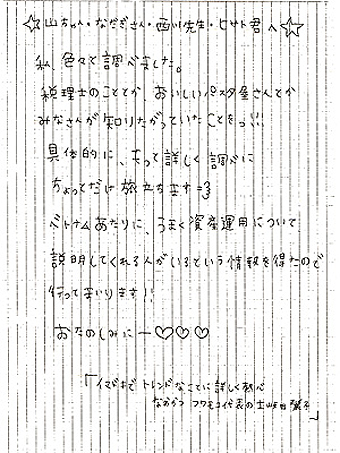 ☆山ちゃん・なだぎさん・西川先生・ヒサト君へ☆
私、色々と調べました。
税理士のこととか、おいしいパスタ屋さんとか
みなさんが知りたがっていたことをっ!!!
具体的に、もって詳しく調べに
ちょっとだけ旅立ちます=3
ベトナムあたりに、うまく資産運用について
説明してくれる人がいるという情報を得たので
行ってまいります!!
おたのしみにー♡♡♡
「イマドキで トレンドなことに詳しく熱心
なおかつ フワモコ代表の土岐田